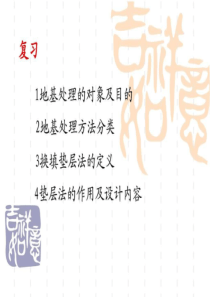 复习
1地基处理的对象及目的
2地基处理方法分类
3换填垫层法的定义
4垫层法的作用及设计内容
吉祥如意
吉祥如意